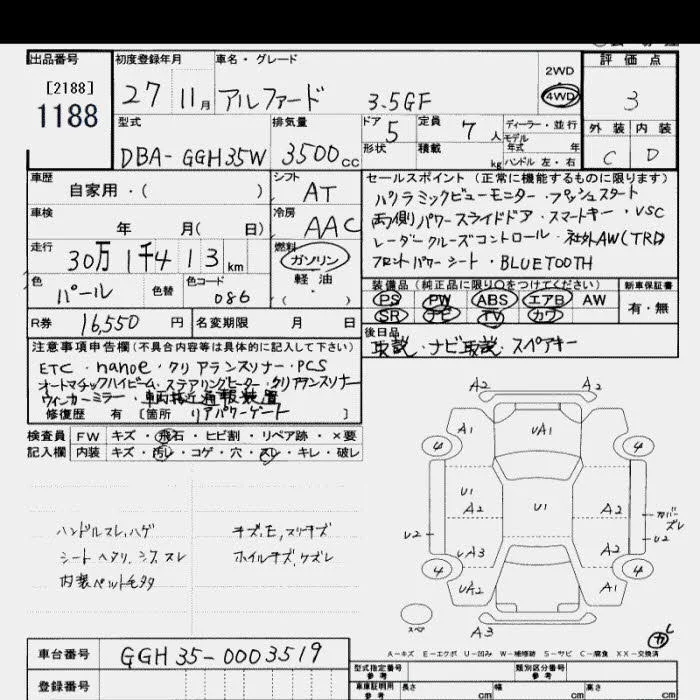 出品番号 初度登録年月 車名・グレード 2WD 評価点
[2188]
1188 27 11月 アルファード 3.5GF 4WD 3
型式 排気量 ドア 5 定員 7人 ディーラー・並行 外装 内装
モデル年式 年
DBA-GGH35W 3500cc 形状 積載 kg ハンドル 左・右 C D
車歴 シフト セールスポイント(正常に機能するものに限ります)
自家用・( ) AT パノラミックビューモニター・プッシュスタート
車検 冷房 両側パワースライドドア・スマートキー・VSC
年 月( 日) AAC レーダークルーズコントロール・社外AW(TRD)
走行 燃料 フロントパワーシート・BLUETOOTH
30万1千413km ガソリン
軽油
( )
色 パール 色替 色コード 086
装備品(純正品に限り○をつけてください) 新車保証書
PS PW ABS エアB AW 有・無
SR ナビ TV カワ
R券 16,550円 名変期限 月 日
後日品
取説・ナビ取説・スペアキー
注意事項申告欄(不具合内容等は具体的に記入して下さい)
ETC・nanoe・クリアランスソナー・PCS
オートマチックハイビーム・ステアリングヒーター・クリアランスソナー
ウィンカーミラー・車両接近通報装置
修復歴 有[箇所 リアパワーゲート ]
検査員 FW キズ・飛石・ヒビ割・リペア跡・×要
記入欄 内装 キズ・汚レ・コゲ・穴・スレ・キレ・破レ
ハンドルスレ,ハゲ キズ,E,スリキズ
シートヘタリ,シワ,スレ ホイルキズ,ケズレ
内装ペット毛多々
A2 A2
A1 UA1 A2
4 4
U1 U1
A2 A2 カバーズレ
U2 U2
UA3 A2
4 4
UA2 A1
スペア
A3 カレ
A-キズ E-エクボ U-凹み W-補修跡 S-サビ C-腐食 XX-交換済
車台番号 GGH35-0003519
型式指定番号 参考 類別区分番号 参考
登録番号 車庫証明用 参考 長さ cm 幅 cm 高さ cm